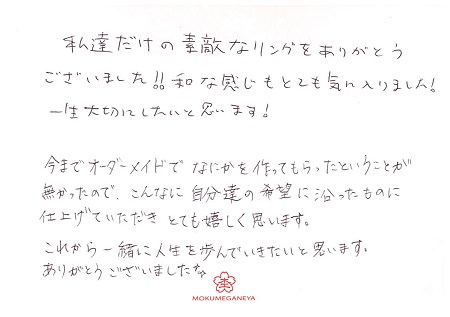 私達だけの素敵なリングをありがとう
ございました!!和な感じもとても気に入りました!
一生大切にしたいと思います!
今までオーダーメイドでなにかを作ってもらったということが
無かったので、こんなに自分達の希望に沿ったものに
仕上げていただきとても嬉しく思います。
これから一緒に人生を歩んでいきたいと思います。
ありがとうございました
MOKUMEGANEYA